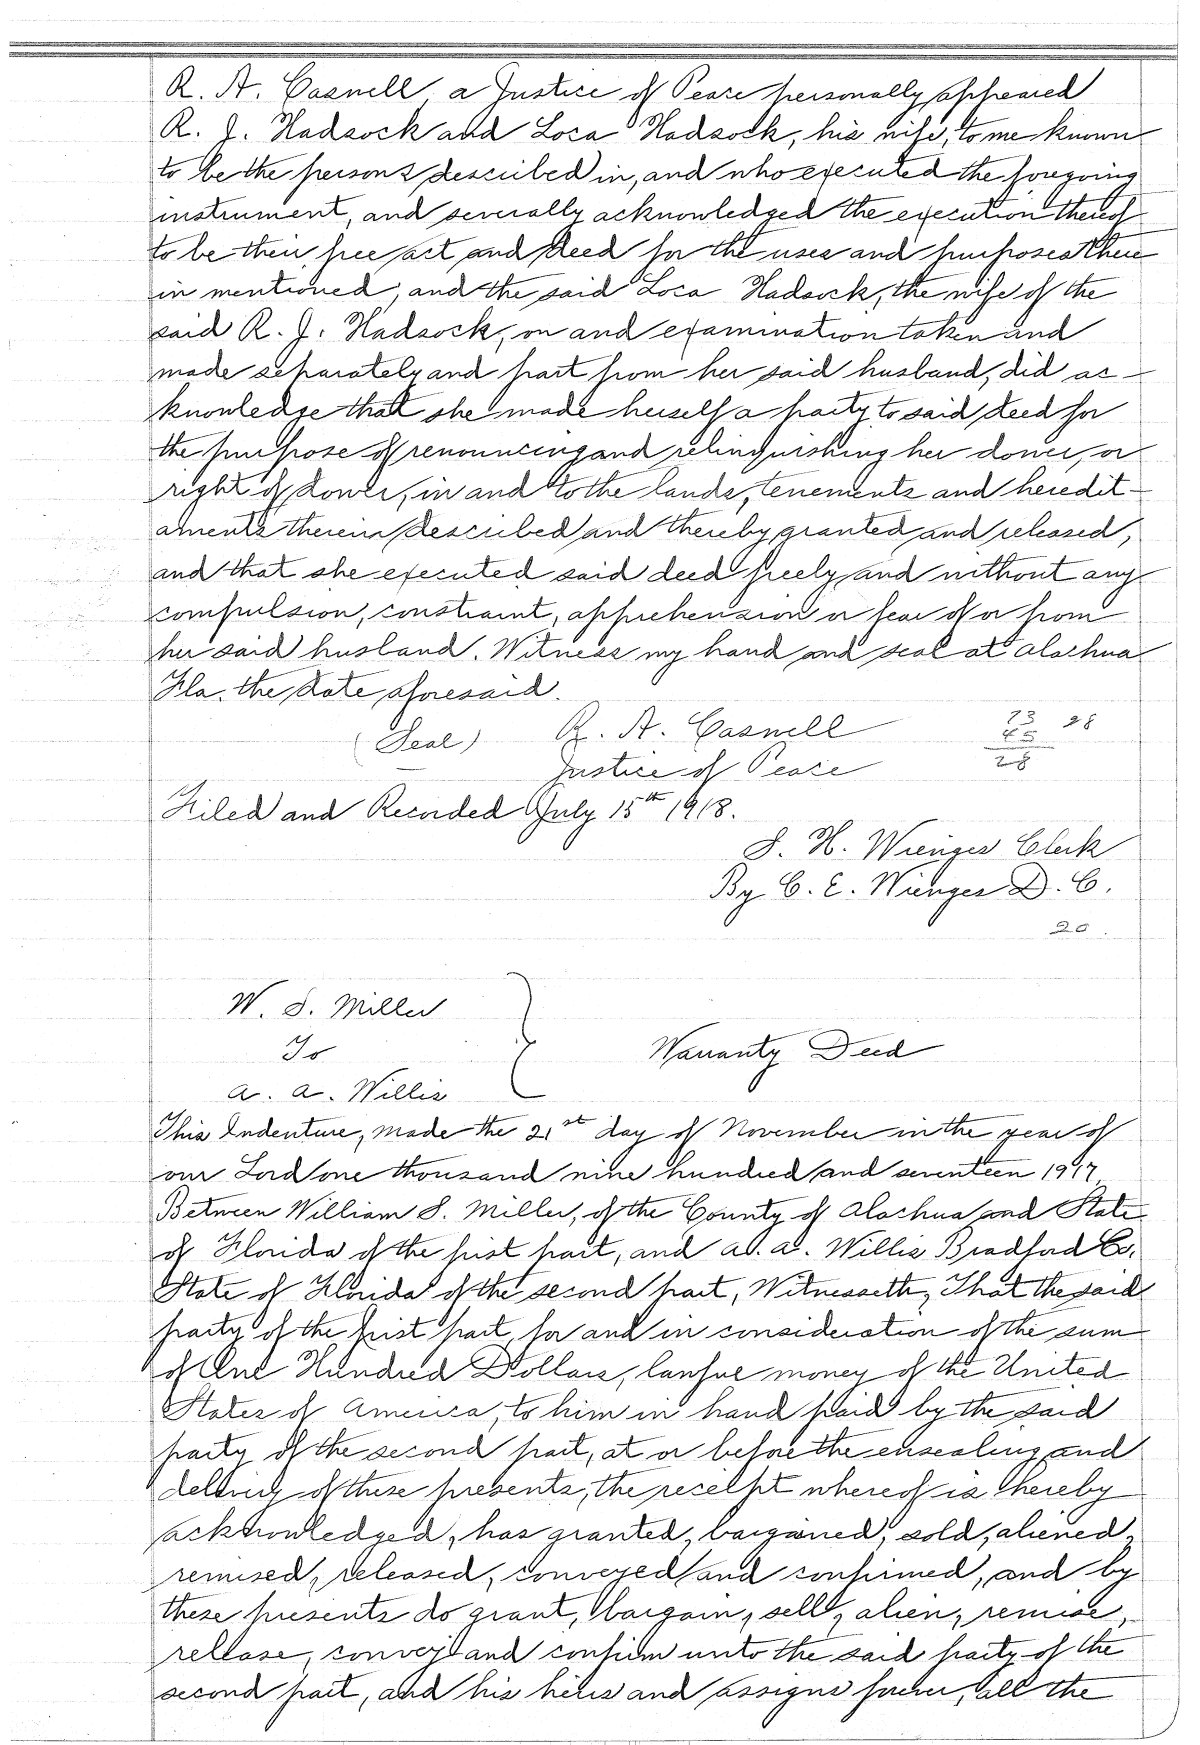 R. A. Casnell a Justice of Peace personally appeared
R. J. Hadsock and Loca Hadsock, his wife, to me known
to be the persons described in, and who executed the foregoing
instrument, and severally acknowledged the execution thereof
to be their free act and deed for the uses and purposes there
in mentioned, and the said Loca Hadsock, the wife of the
said R. J. Hadsock, on and examination taken and
made separately and part from her said husband, did ac-
knowledge that she made herself a party to said deed for
the purpose of renouncing and relinquishing her dower, or
right of dower, in and to the lands, tenements and heredit-
aments therein described and thereby granted and released,
and that she executed said deed freely and without any
compulsion, constraint, apprehension or fear of or from
her said husband. Witness my hand and seal at Alachua
Fla. the date aforesaid.
(Seal) R. A. Casnell 73 28
45
Justice of Peace 28
Filed and Recorded July 15th 1918.
S. H. Wienges Clerk
By C. E. Wienges D. C.
20.
W. S. Miller
To Warranty Deed
A. A. Willis
This Indenture, made the 21st day of November in the year of
our Lord one thousand nine hundred and seventeen 1917
Between William S. Miller, of the County of Alachua and State
of Florida of the first part, and A. A. Willis Bradford Co.
State of Florida of the second part, Witnesseth, That the said
party of the first part, for and in consideration of the sum
of One Hundred Dollars, lawful money of the United
States of America, to him in hand paid by the said
party of the second part, at or before the ensealing and
delivery of these presents, the receipt whereof is hereby
acknowledged, has granted, bargained, sold, aliened,
remised, released, conveyed and confirmed, and by
these presents do grant, bargain, sell, alien, remise,
release, convey and confirm unto the said party of the
second part, and his heirs and assigns forever, all the